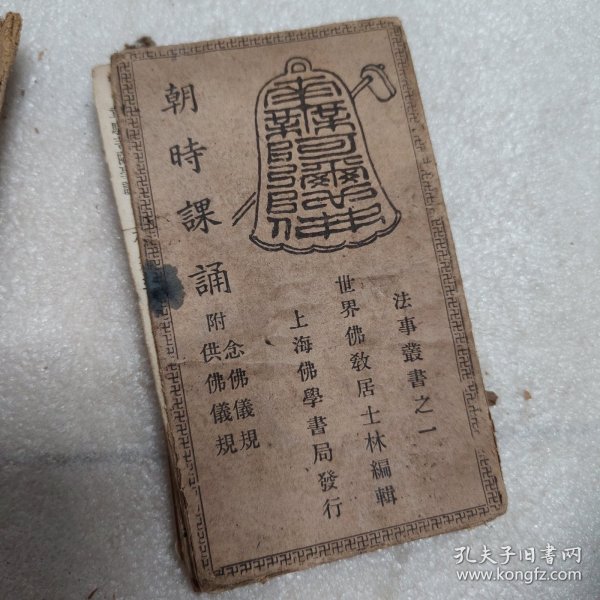 法事叢書之一
世界佛敎居士林編輯
上海佛學書局發行
朝時課誦
附
念佛儀規
供佛儀規
南無阿彌陀佛
孔夫子旧书网
www.kongfz.com